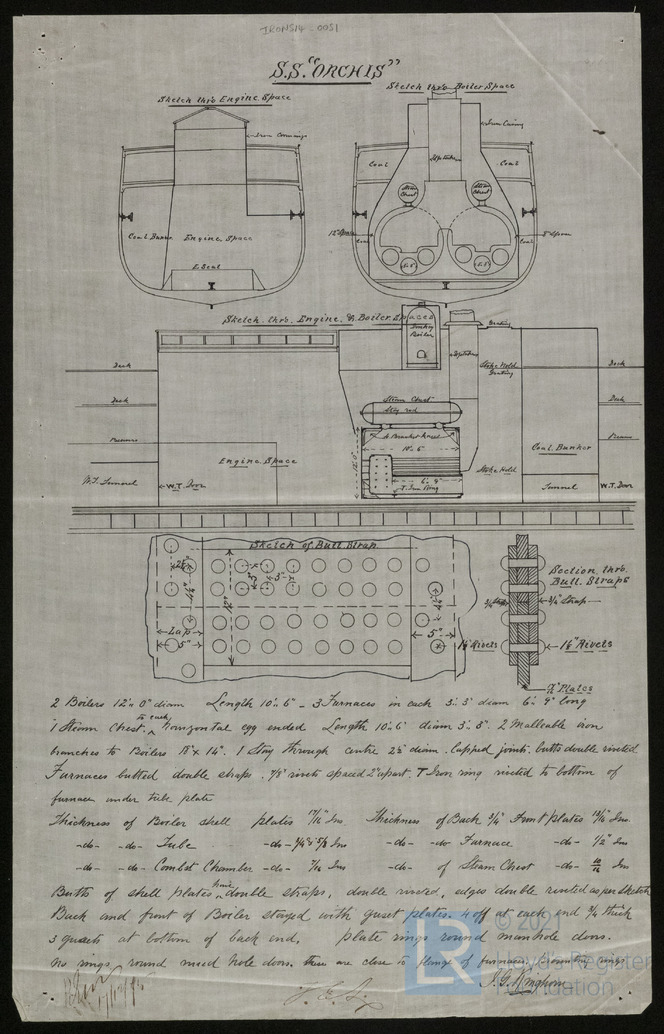 IRON514-0051
S.S. "ORCHIS"
Sketch thro Engine Space
Sketch thro Boiler Space
Iron Casing
Coal
Uptake
Coal
Steam Chest
Steam Chest
Coal Bunker
Engine Space
E. Seat
Sketch thro. Engine, & Boiler Spaces
Donkey Boiler
Uptake
Stoke Hold
Deck
Deck
Deck
Deck
Steam Chest
Stay rod
10'. 6"
Engine Space
Coal Bunker
W.T. Tunnel
W.T. Door
6'. 9"
T. Iron Ring
Stoke Hold
Tunnel
W.T. Door
Sketch of Butt Strap
Section thro.
Butt Straps
3"
3"
Lap
5"
5"
3/4" Strap
Rivets
Rivets
Plates
2 Boilers 12'. 0" diam Length 10'. 6" - 3 Furnaces in each 3'. 3" diam 6'. 9" long
1 Steam Chest to each horizontal egg ended Length 10'. 6" diam 3'. 3". 2 Malleable iron
branches to Boilers 18" x 14". 1 Stay through centre diam. Lapped joints. butts double riveted
Furnaces butted double straps. 7/8" rivets spaced 2" apart. T Iron ring riveted to bottom of
furnace under tube plate
Thickness of Boiler shell plates Ins Thickness of Back 3/4" Front plates Ins
-do- -do- Tube -do- Ins -do- -do- Furnace -do- 1/2" Ins
-do- -do- Combst Chamber -do- Ins -do- of Steam Chest -do- Ins
Butts of shell plates have double straps, double riveted, edges double riveted as per Sketch
Back and front of Boiler stayed with guset plates. 4 off at each end 3/4 thick
3 gusets at bottom of back end. plate rings round manhole doors.
No rings round mud hole doors. these are close to flange of furnace mounting rings
© 2021
Lloyd's Register
Foundation
LR